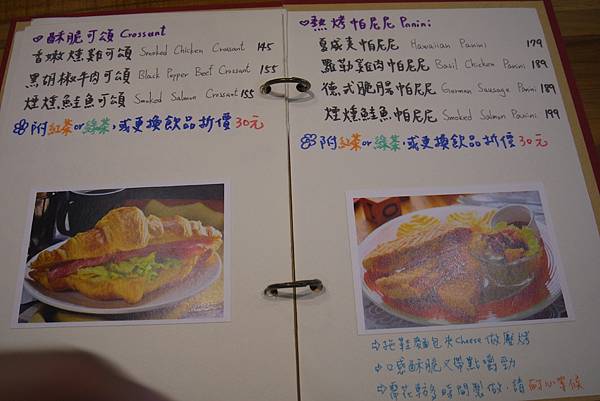 酥脆可頌 Crossant
香嫩燻雞可頌 Smoked Chicken Croissant 145
黑胡椒牛肉可頌 Black Pepper Beef Crossant 155
煙燻鮭魚可頌 Smoked Salmon Crossant 155
附紅茶or綠茶,或更換飲品折價30元
熱烤帕尼尼 Panini
夏威夷帕尼尼 Hawaiian Panini 179
羅勒雞肉帕尼尼 Basil Chicken Panini 189
德式脆腸帕尼尼 German Sausage Panini 189
煙燻鮭魚帕尼尼 Smoked Salmon Panini 199
附紅茶or綠茶,或更換飲品折價30元
拖鞋麵包夾cheese做壓烤
口感酥脆又帶點嚼勁
需花較多時間製做,請耐心等候